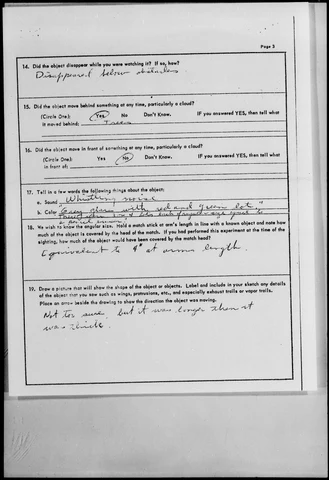 Page 3
14. Did the object disappear while you were watching it? If so, how?
Disappeared below obstacles
15. Did the object move behind something at any time, particularly a cloud?
(Circle One): Yes No Don't Know. IF you answered YES, then tell what
it moved behind: Trees
16. Did the object move in front of something at any time, particularly a cloud?
(Circle One): Yes No Don't Know. IF you answered YES, then tell what
in front of:
17. Tell in a few words the following things about the object:
a. Sound Whistling noise
b. Color with red and green
18. We wish to know the angular size. Hold a match stick at arm's length in line with a known object and note how
much of the object is covered by the head of the match. If you had performed this experiment at the time of the
sighting, how much of the object would have been covered by the match head?
Equivalent to 4" at arms length.
19. Draw a picture that will show the shape of the object or objects. Label and include in your sketch any details
of the object that you saw such as wings, protrusions, etc., and especially exhaust trails or vapor trails.
Place an arrow beside the drawing to show the direction the object was moving.
Not too sure, but it was longer than it
was thick.